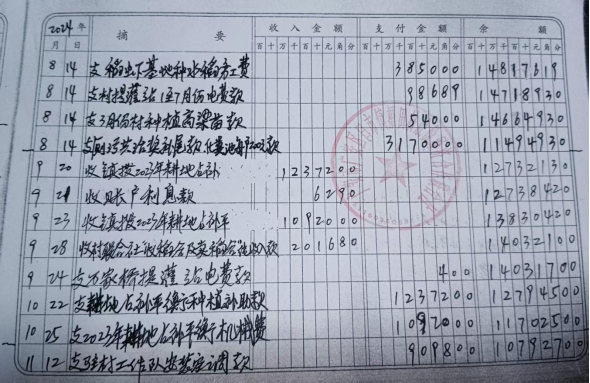 2024年 摘要 收入金额 支付金额 余额
月 日 百十万千百十元角分 百十万千百十元角分 百十万千百十元角分
8 14 支稻下基地种水稻劳工费 385000 14817619
8 14 支村提灌站1至7月份电费款 98689 14718930
8 14 支3月份村种植高梁苗款 54000 14664930
8 14 支污共治奖补尾款 3170000 11494930
9 20 收镇拨2023年耕地占补 1237200 12732130
9 21 收账户利息款 6290 12738420
9 23 收镇拨2023年耕地占补平 1092000 13830420
9 28 收村联合社收稻谷及卖稻谷收入款 201680 14032100
9 24 支万家桥提灌站电费款 400 14031700
10 22 支耕地占补平衡种植补助款 1237200 12794500
10 25 支2023年耕地占补平衡机械费 1092000 11702500
11 12 支驻村工作队安装空调款 909800 10792700